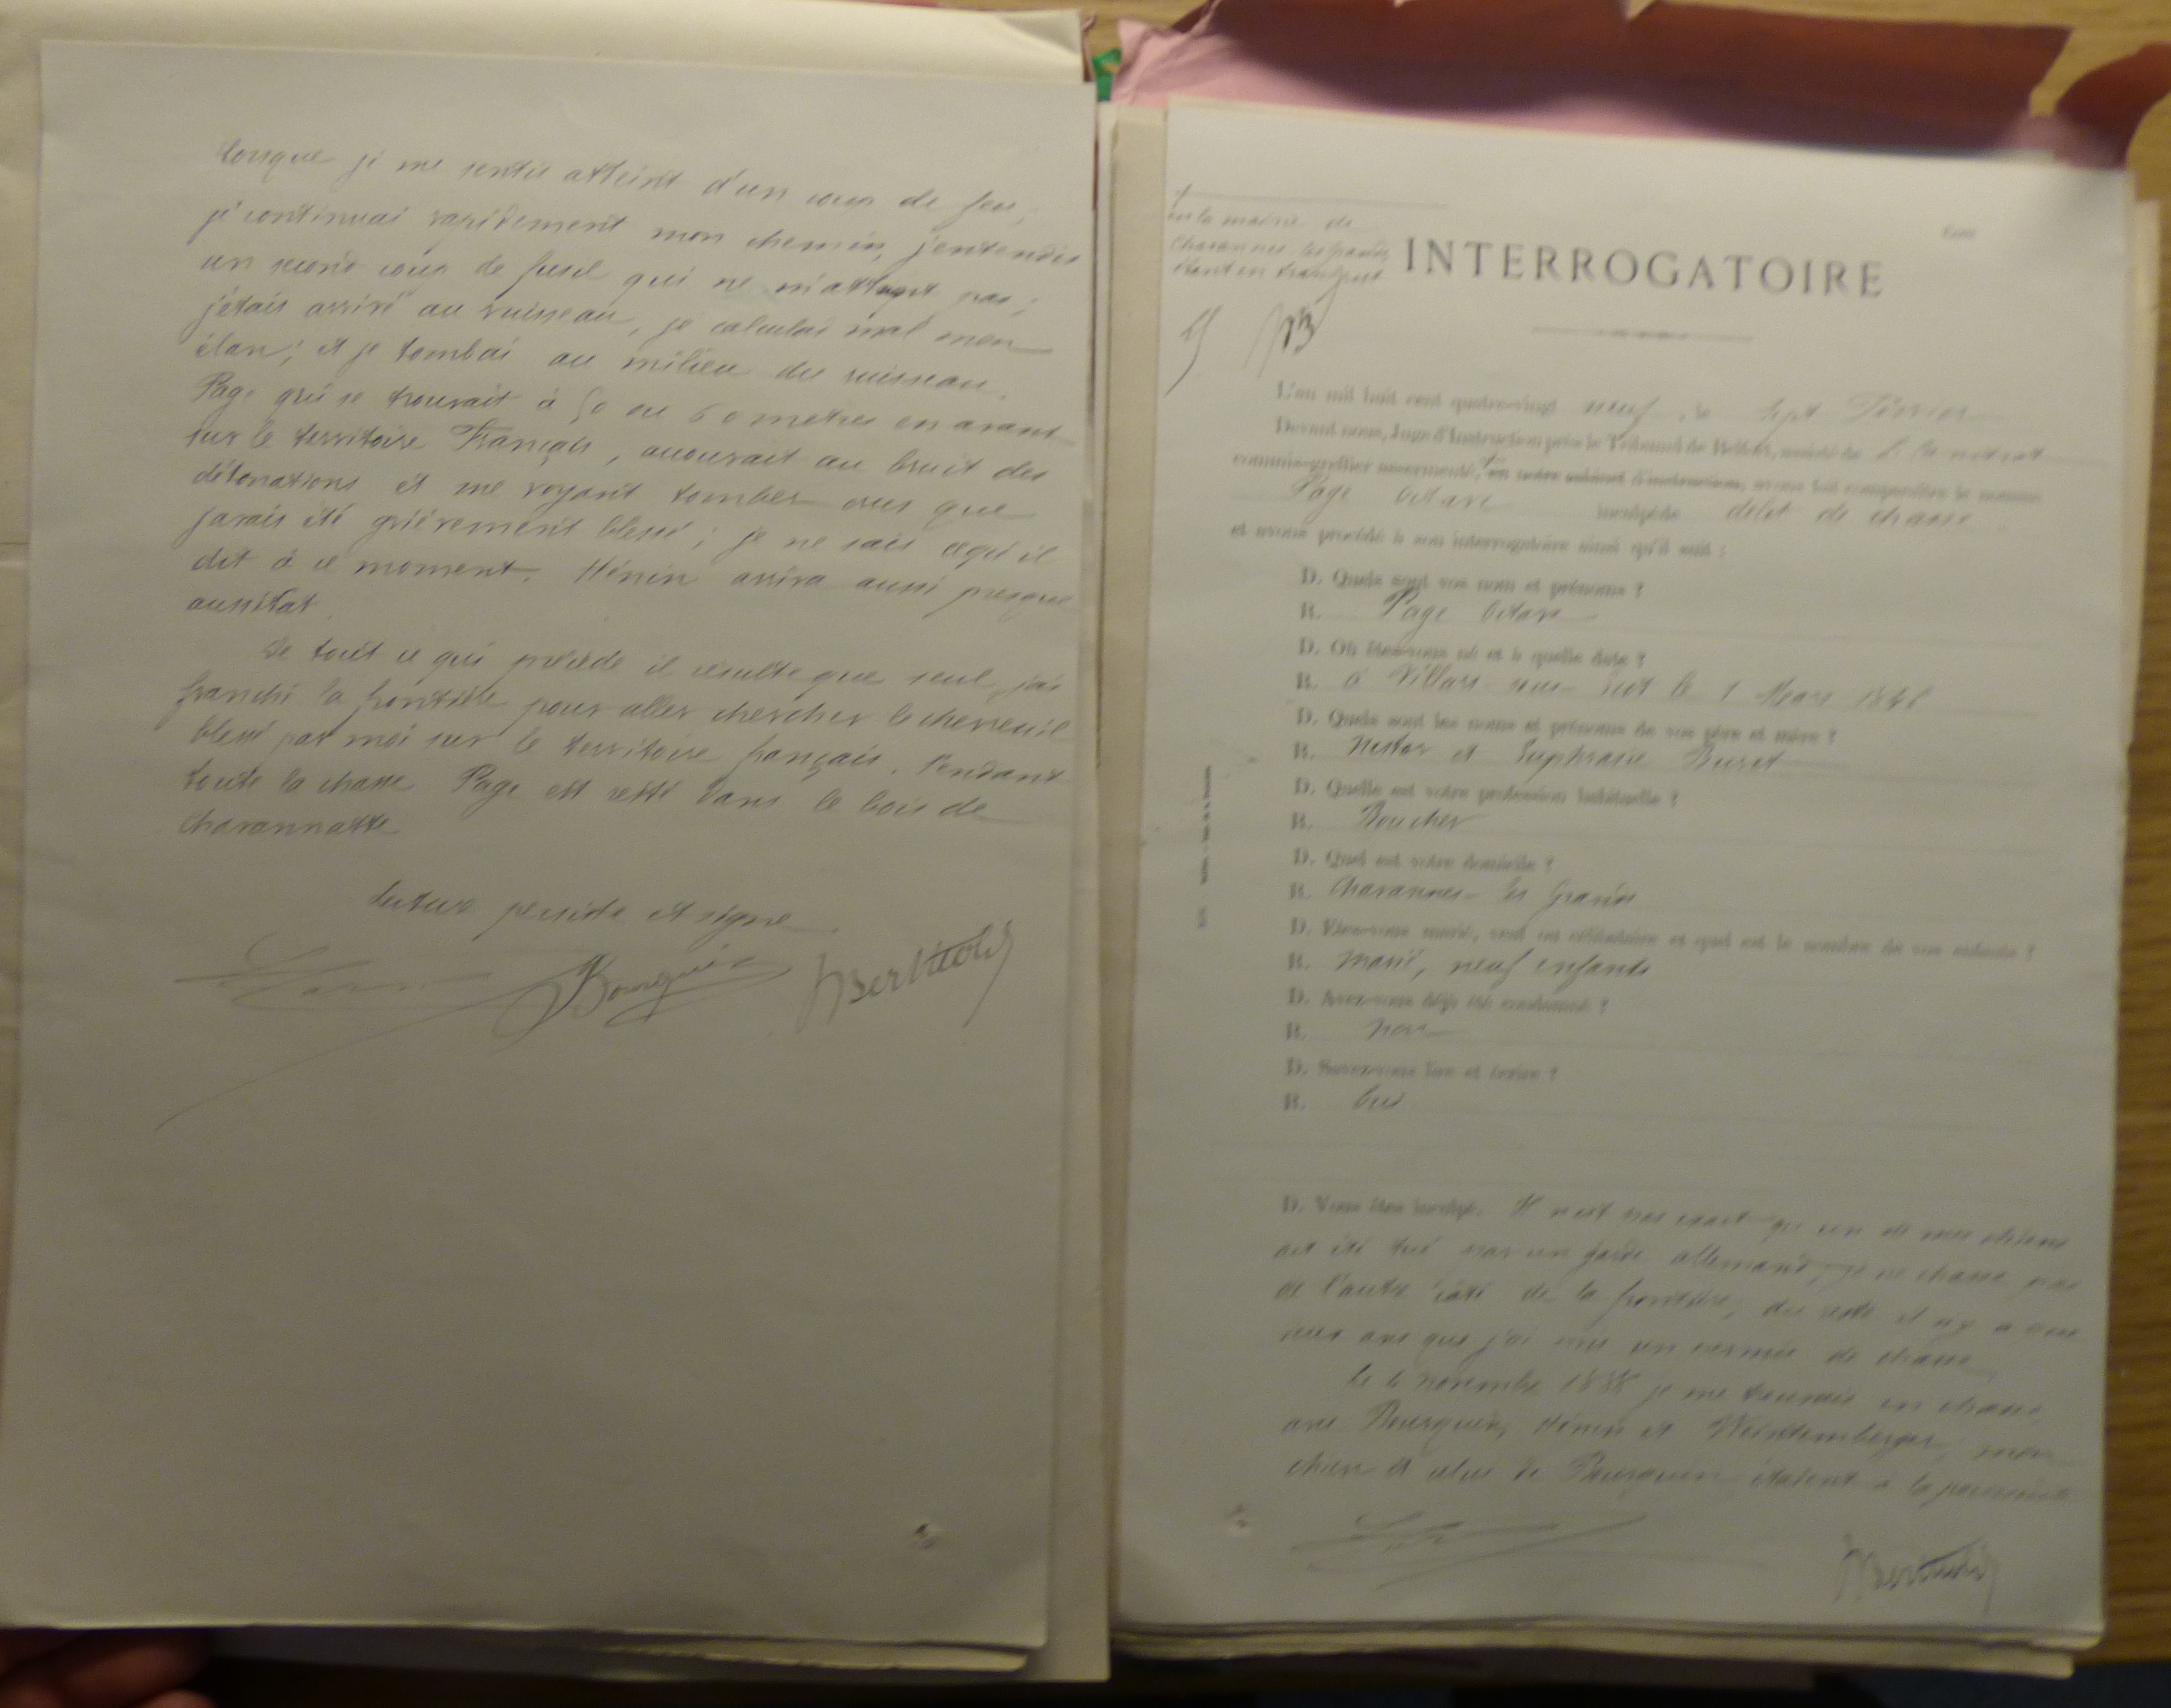 lorsque je me sentis atteint d'un coup de feu,
je continuai rapidement mon chemin, j'entendis
un second coup de fusil qui ne m'atteignit pas;
j'étais arrivé au ruisseau, je calculai mal mon
élan; et je tombai au milieu du ruisseau.
Page qui se trouvait à 50 ou 60 mètres en avant
sur le territoire Français, accourait au bruit des
détonations et me voyant tomber crus que
j'avais été grièvement blessé; je ne sais ce qu'il
dit à ce moment. Hénin arriva aussi presque
aussitôt.
De tout ce qui précède il résulte que seul, j'ai
franchi la frontière pour aller chercher le chevreuil
blessé par moi sur le territoire français. Pendant
toute la chasse Page est resté dans le bois de
Chavannatte
Lecture persiste et signe
Bourquin Berthold
en la mairie de
Chavannes les grands
étant en transport
INTERROGATOIRE
L'an mil huit cent quatre-vingt neuf, le sept Février
Devant nous, Juge d'Instruction près le Tribunal de Belfort, assisté de
commis-greffier assermenté, en notre cabinet d'instruction, avons fait comparaître le nommé
Page Octave inculpé de délit de chasse
et avons procédé à son interrogatoire ainsi qu'il suit :
D. Quels sont vos nom et prénoms ?
R. Page Octave
D. Où êtes-vous né et à quelle date ?
R. à Villars sous 1 Mars
D. Quels sont les noms et prénoms de vos père et mère ?
R. Nestor et Euphrasie
D. Quelle est votre profession habituelle ?
R. Boucher
D. Quel est votre domicile ?
R. Chavannes-les Grands
D. Etes-vous marié, veuf ou célibataire et quel est le nombre de vos enfants ?
R. marié, neuf enfants
D. Avez-vous déjà été condamné ?
R. non
D. Savez-vous lire et écrire ?
R. Oui
D. Vous êtes inculpé. Il n'est pas exact qu'un de mes chiens
ait été tué par un garde allemand, je ne chasse pas
de l'autre côté de la frontière, du reste il n'y a que
ans que j'ai un permis de chasse
Le 4 novembre 1888 je me trouvais en chasse
avec Bourquin, Hénin et mon
chien et celui de Bourquin étaient à la poursuite
Berthold